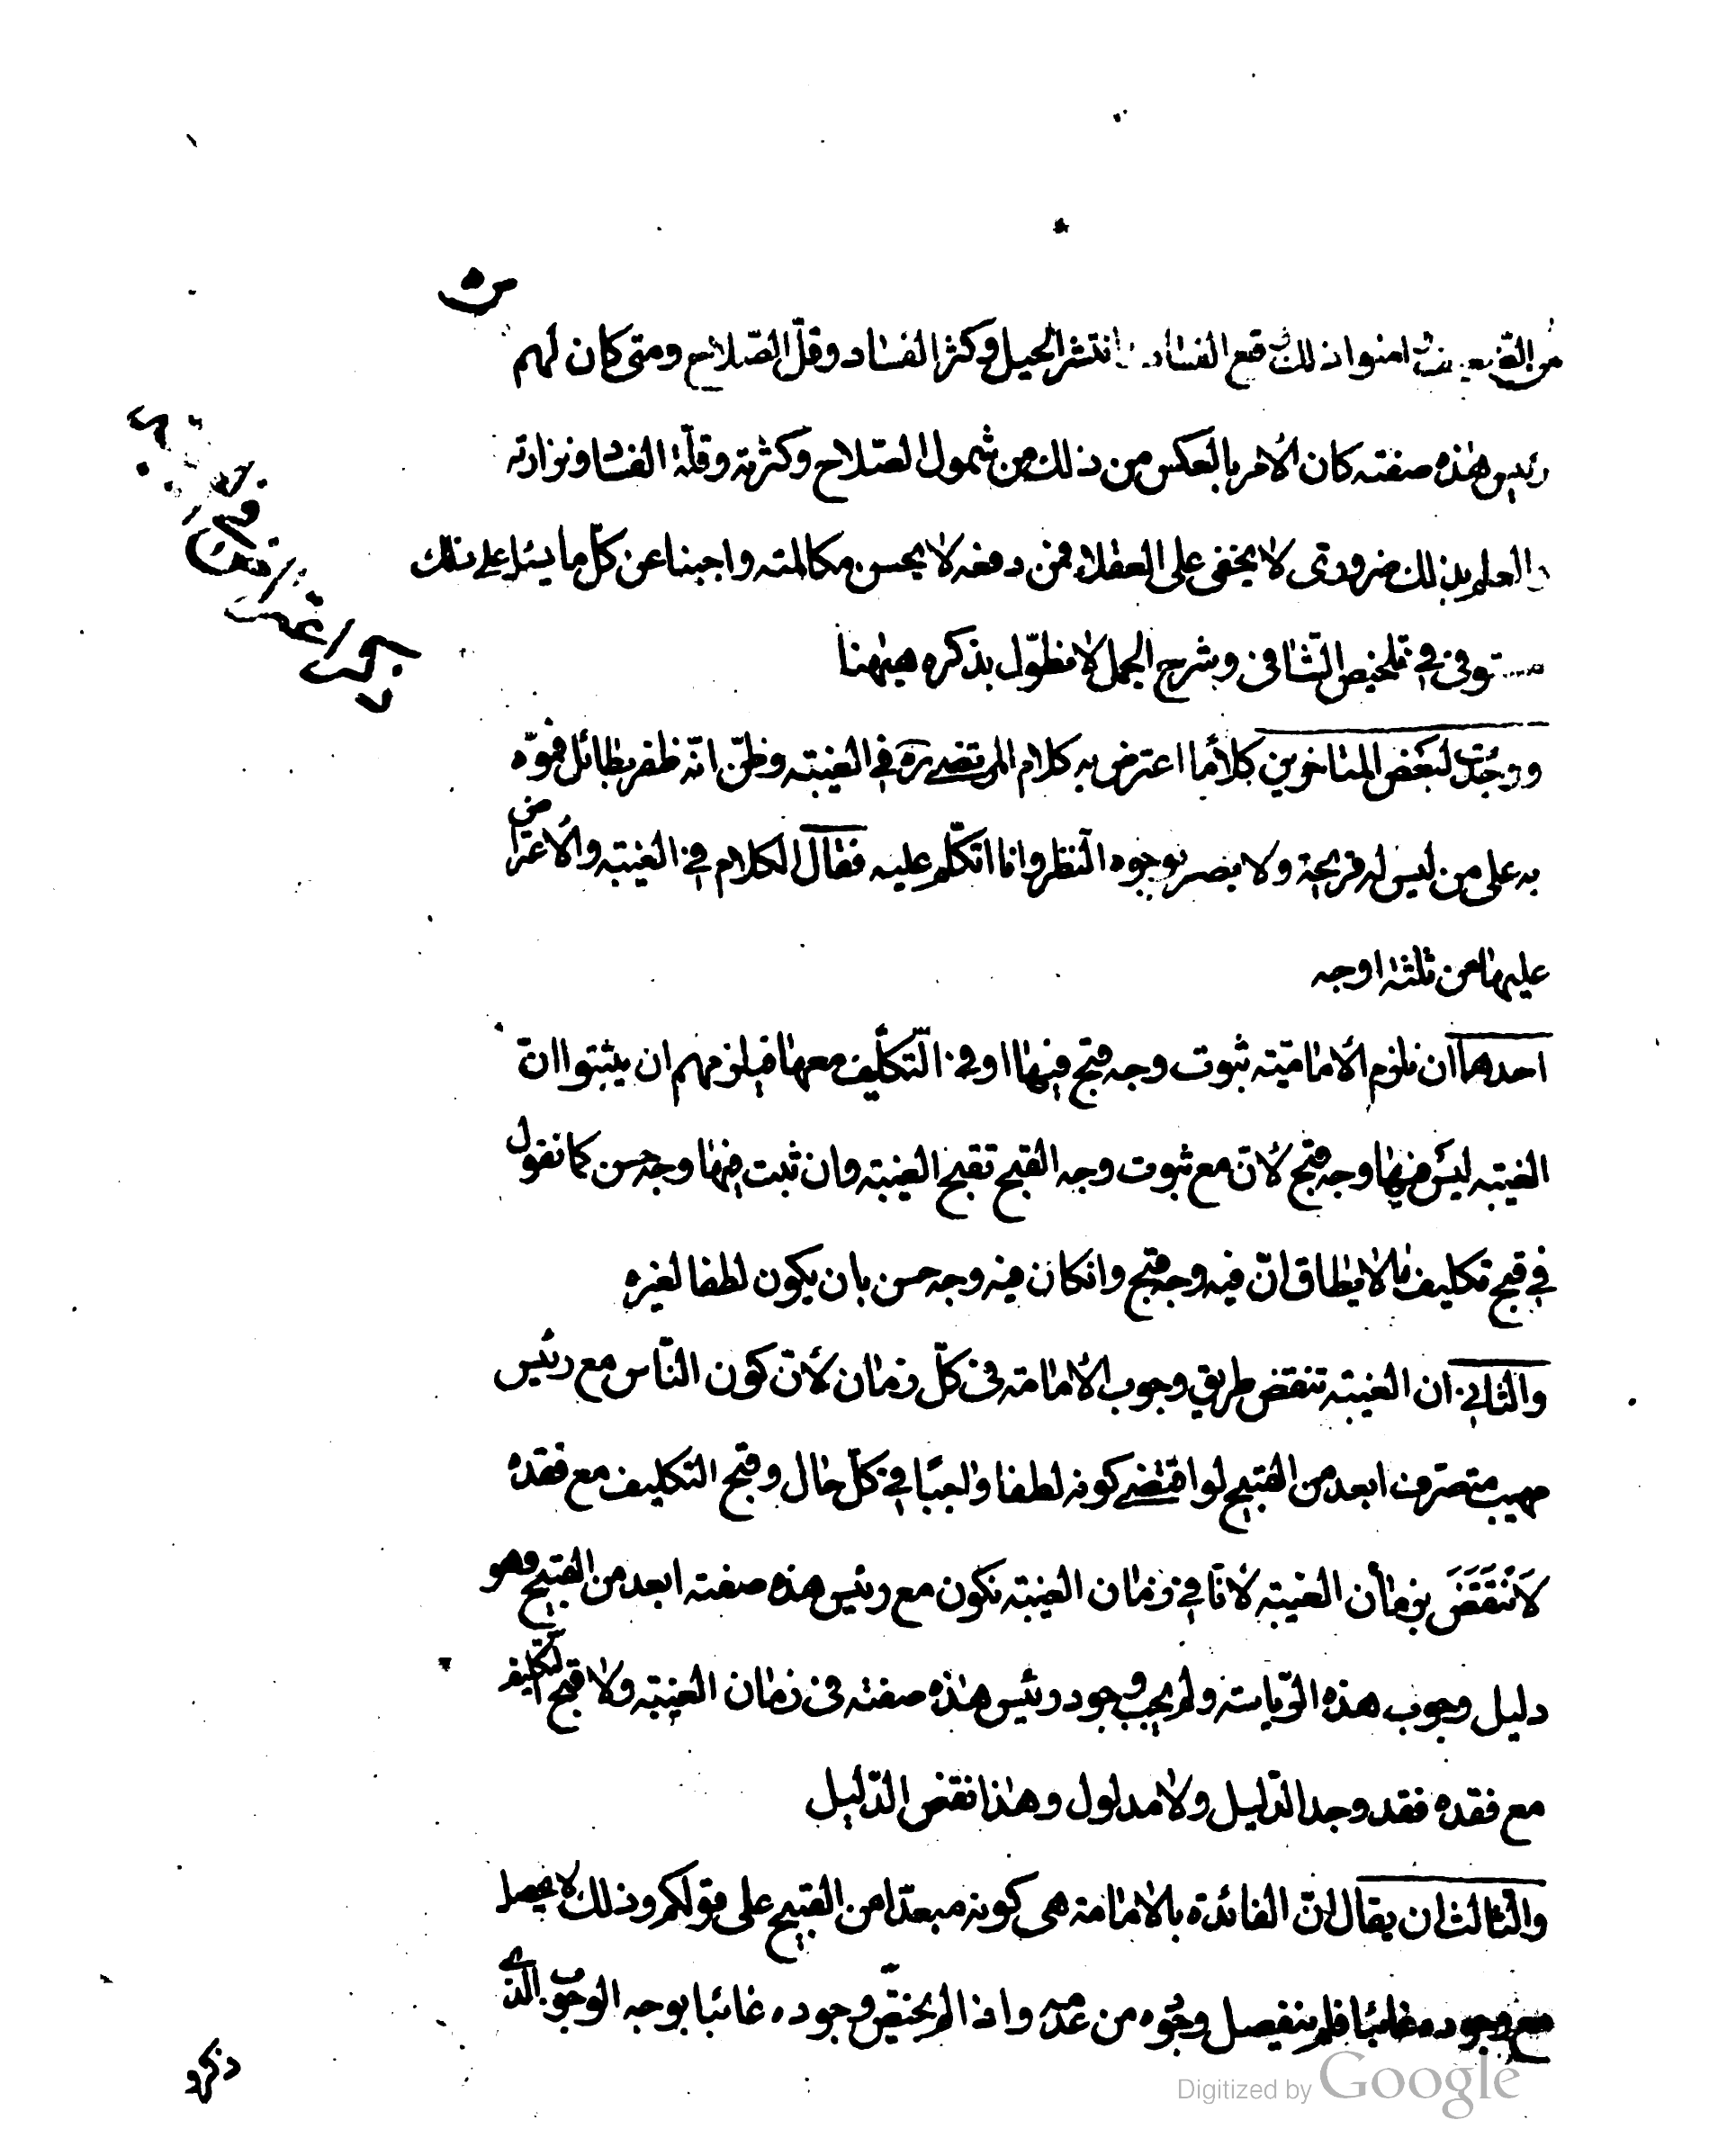 من الضعيف امنوا ذلك وقع الفساد انتشر الحيل وكثر الفساد وقلّ الصّلاح ومتى كان لهم
رئيس هذه صفته كان الأمر بالعكس من ذلك من شمول الصّلاح وكثرته وقلّة الفساد ونزارته
والعلم بذلك ضرورى لا يخفى على العقلاء فمن دفعه لا يحسن مكالمته واجبنا عن كلّ ما يسئل على ذلك
مستوفى فى تلخيص الشافى وشرح الجمل لا نطوّل بذكره هيهنا
ووجدت لبعض المتاخرين كلاما اعترض به كلام المرتضى ره فى الغيبة وظنّ انّه ظفر بطائل فموّه
به على من ليس له قريحة ولا بصر بوجوه النظر وانا اتكلّم عليه فقال الكلام فى الغيبة والأعتراض
عليها من ثلثة اوجه
احدها ان نلزم الأماميّة ثبوت وجه قبح فيها او فى التّكليف معها فيلزمهم ان يثبتوا انّ
الغيبة ليس فيها وجه قبح لأنّ مع ثبوت وجه القبح تقبح الغيبة وان ثبت فيها وجه حسن كما نقول
فى قبح تكليف ما لا يطاق انّ فيه وجه قبح وانكان فيه وجه حسن بان يكون لطفا لغيره
والثانى ان الغيبة تنقض طريق وجوب الأمامة فى كلّ زمان لأنّ كون النّاس مع رئيس
مهيب متصرف ابعد من القبيح لو اقتضى كونه لطفا واجبا فى كلّ حال وقبح التكليف مع فقده
لانتقض بزمان الغيبة لأنّا فى زمان الغيبة نكون مع رئيس هذه صفته ابعد من القبيح وهو
دليل وجوب هذه الرّياسة ولم يجب وجود رئيس هذه صفته فى زمان الغيبة ولا قبح التكليف
مع فقده فقد وجد الدّليل ولا مدلول وهذا نقض الدّليل
والثالث ان يقال انّ الفائدة بالأمامة هى كونه مبعدا من القبيح على قولكم وذلك لا يحصل
مع وجوده غائبا فلم ينفصل وجوده من عدمه واذا لم يختصّ وجوده غائبا بوجه الوجوب الذى
ذكروه
Digitized by Google